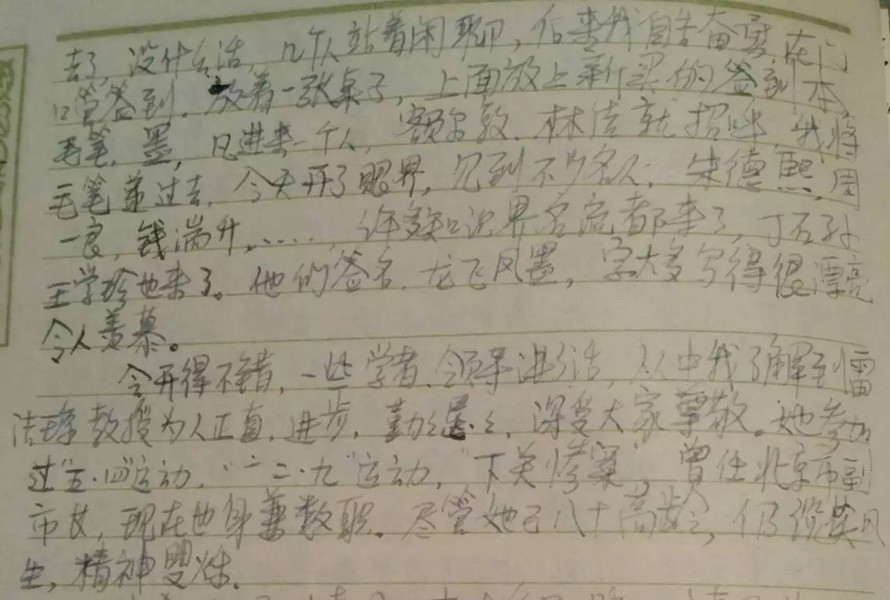 去了,没什么活,几个人站着闲聊,后来我自告奋勇在门
口管签到。放着一张桌子,上面放上新买的签到本,
毛笔,墨,凡进来一个人,额尔敦、林信就招呼,我将
毛笔递过去,今天开了眼界,见到不少名人:朱德熙,周
一良,钱端升,……,许多知识界名流都来了,丁石孙
王学珍也来了。他的签名,龙飞凤墨,字大多写得很漂亮
令人羡慕。
会开得不错,一些学者、领导讲了话,从中我了解到雷
洁琼教授为人正直,进步,勤恳,深受大家尊敬。她参加
过“五·四”运动,“一二·九”运动,“下关惨案”,曾任北京市副
市长,现在也身兼数职。尽管她已八十高龄,仍谈笑风
生,精神矍烁。